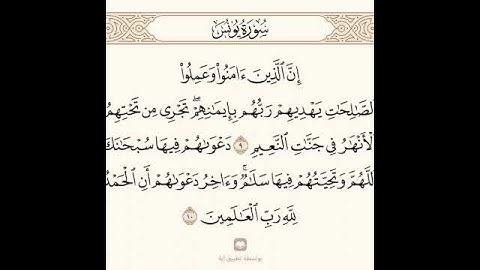 سُورَةُ يُونُسَ
إِنَّ ٱلَّذِينَ ءَامَنُوا۟ وَعَمِلُوا۟
ٱلصَّٰلِحَٰتِ يَهْدِيهِمْ رَبُّهُم بِإِيمَٰنِهِمْ ۖ تَجْرِى مِن تَحْتِهِمُ
ٱلْأَنْهَٰرُ فِى جَنَّٰتِ ٱلنَّعِيمِ ٩ دَعْوَىٰهُمْ فِيهَا سُبْحَٰنَكَ
ٱللَّهُمَّ وَتَحِيَّتُهُمْ فِيهَا سَلَٰمٌ ۚ وَءَاخِرُ دَعْوَىٰهُمْ أَنِ ٱلْحَمْدُ
لِلَّهِ رَبِّ ٱلْعَٰلَمِينَ ١٠
بواسطة تطبيق آية